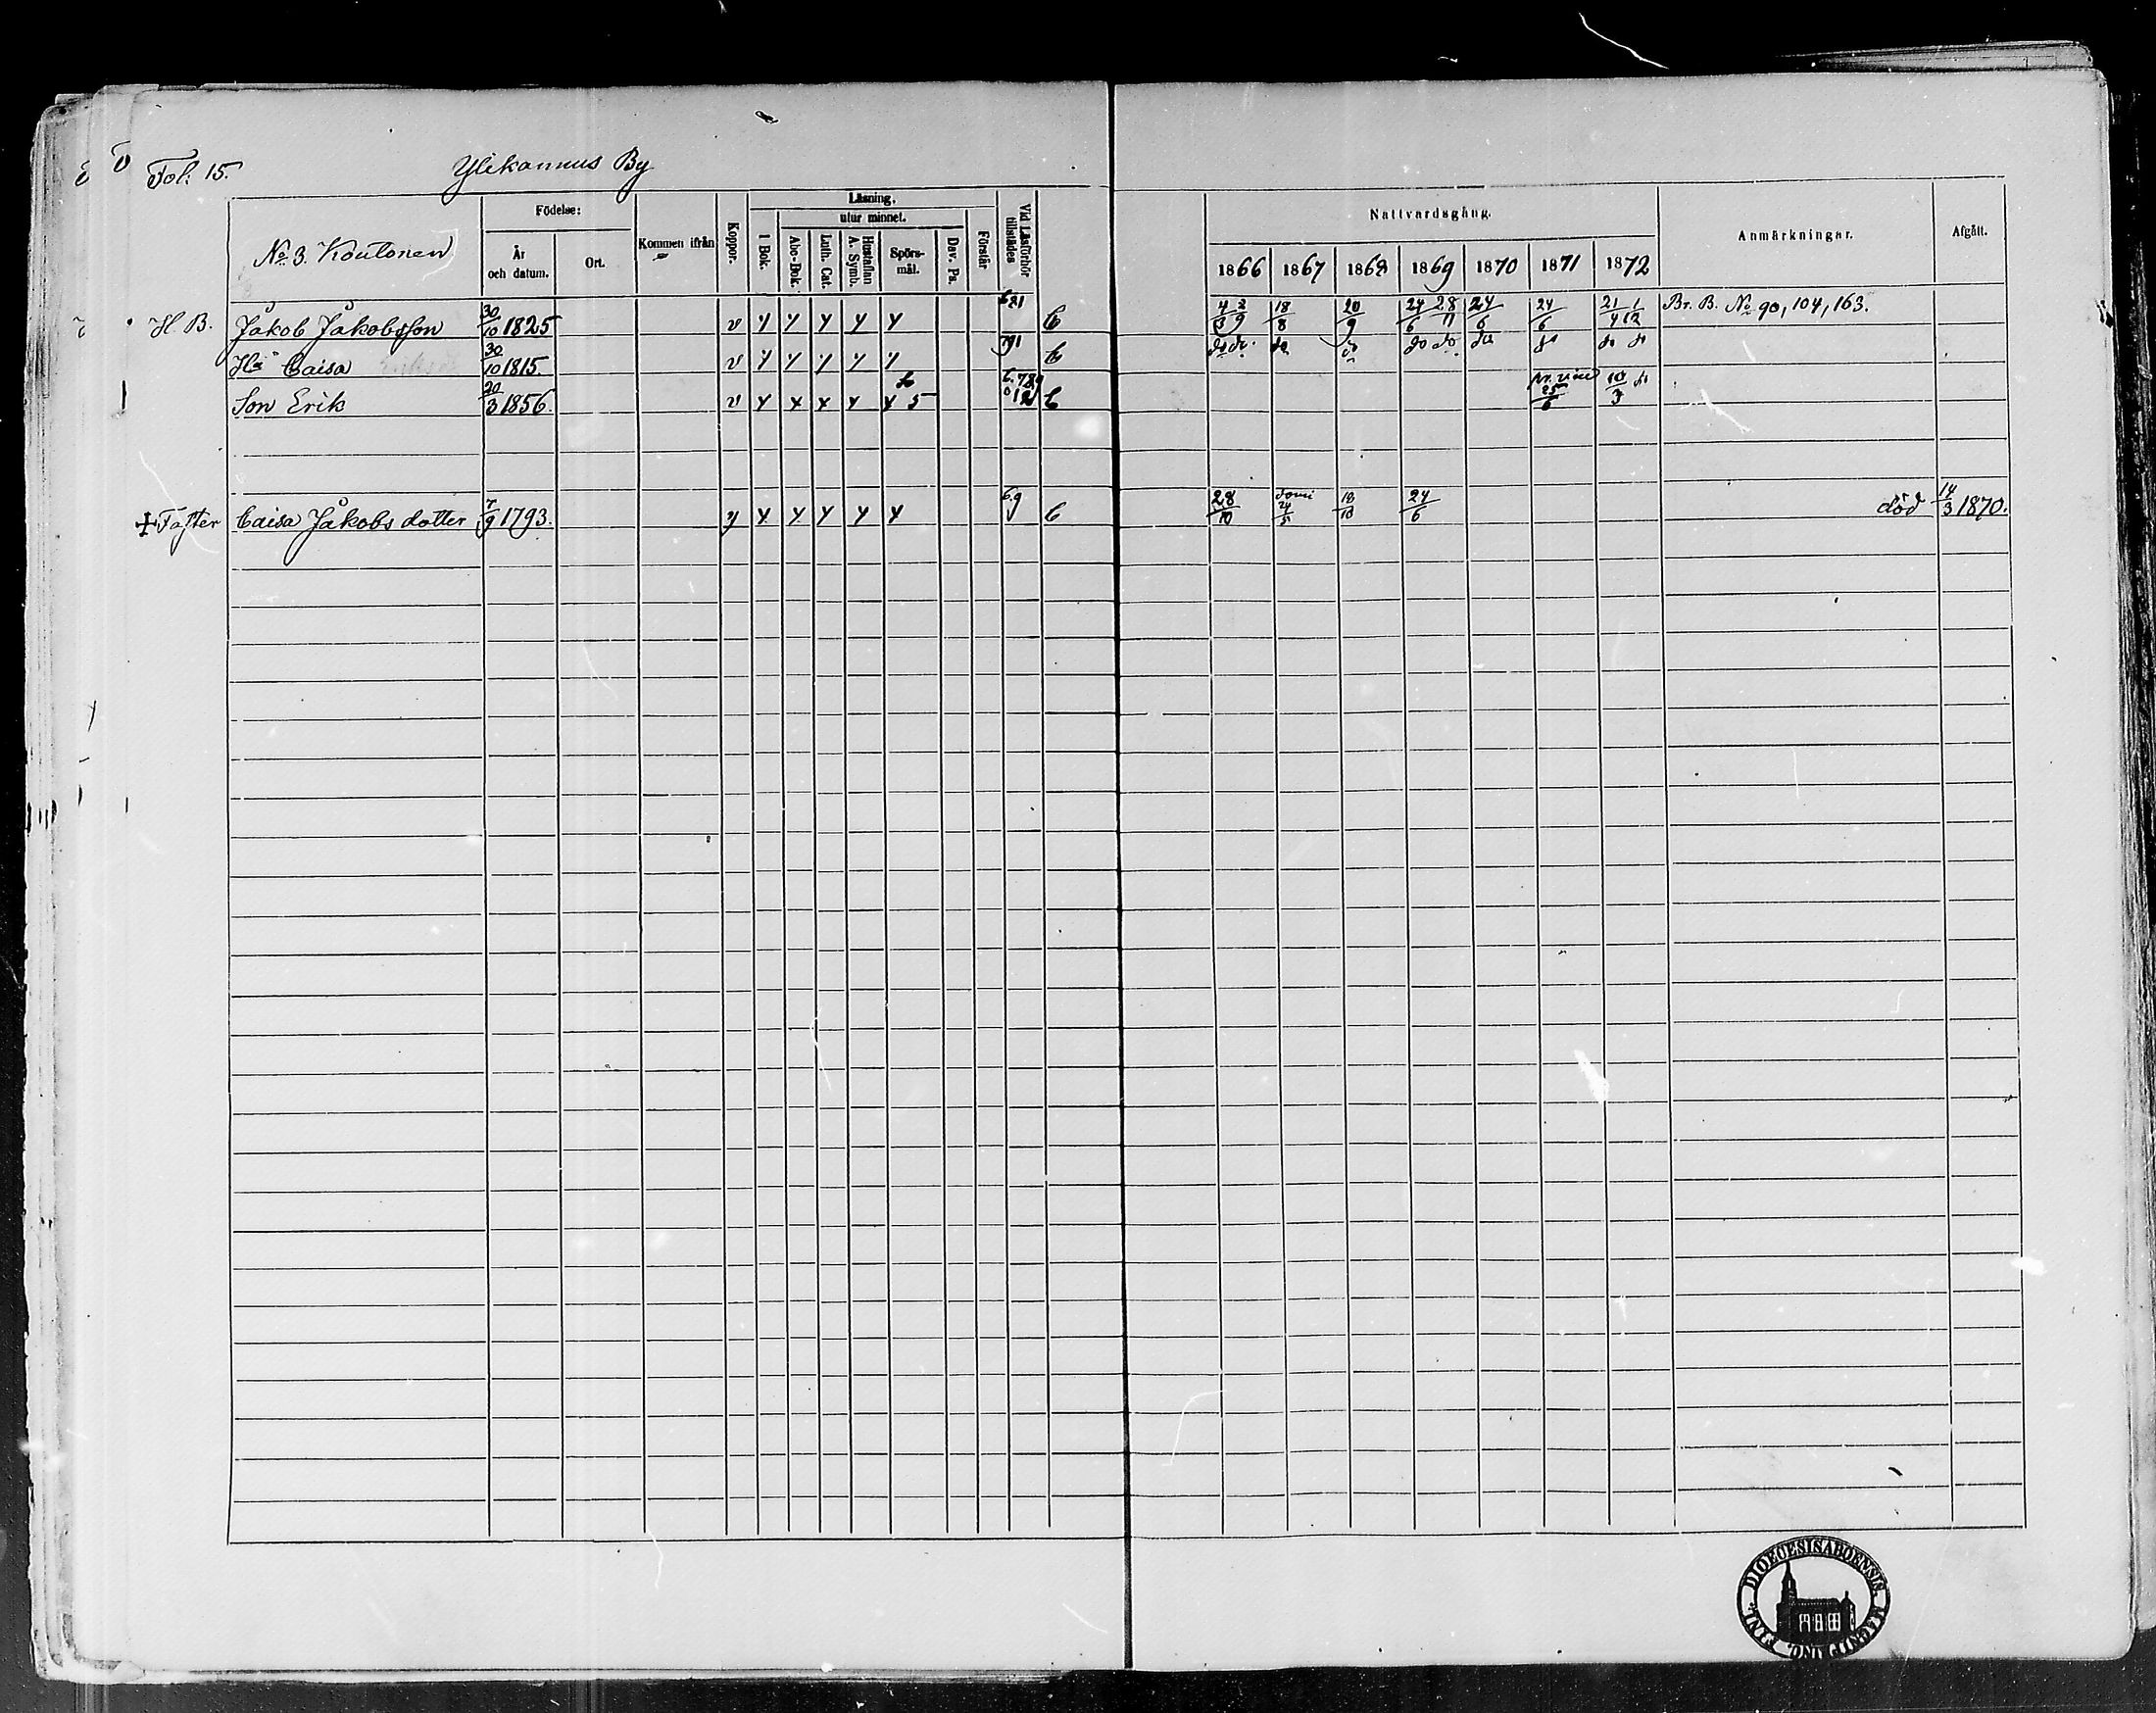 Fol. 15. Ylikannus By
No 3. Koutonen Födelse: År och datum. Ort. Kommen ifrån Koppor. Läsning, I Bok. utur minnet. Abc-Bok. Luth. Cat. Hustaflan A. Symb. Spörsmål. Dav. Ps. Förstår Vid Läsförhör tillstädes Nattvardsgång. 1866 1867 1868 1869 1870 1871 1872 Anmärkningar. Afgått.
H. B. Jakob Jakobsson 30/10 1825 v y y y y y C 4/3 2/9 18/8 20/9 24/6 28/11 24/6 24/6 21/4 1/12 Br. B. No 90, 104, 163.
Hu Caisa 30/10 1815. v y y y y y C do do do do do do do do do do
Son Erik 20/3 1856. v y x x y y 5 C 25/6 10/3 do
Faster Caisa Jakobs dotter 7/9 1793. y y y y y y 6.9 C 28/10 24/5 18/10 24/6 död 14/3 1870.
DIOECESIS ABOENSIS. MAGNI DUC. FINL.